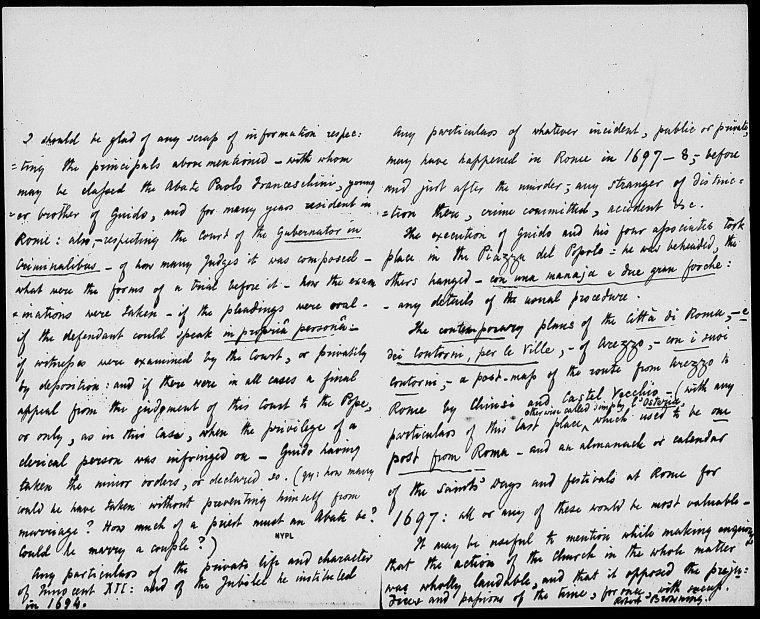 I should be glad of any scrap of information respec:
=ting the principals above mentioned – with whom
may be classed the Abate Paolo Franceschini, young
=er brother of Guido, and for many years resident in
Rome: also, – respecting the Court of the Gubernator in
Criminalibus – of how many Judges it was composed –
what were the forms of a trial before it – how the exam
=inations were taken – if the pleadings were oral –
if the defendant could speak in propriâ personâ –
if witnesses were examined by the Court, or privately
by deposition: and if there were in all cases a final
appeal from the judgment of this Court to the Pope,
or only, as in this case, when the privilege of a
clerical person was infringed on – Guido having
taken the minor orders, or declared so. (qy: how many
could he have taken without preventing himself from
marriage? How much of a priest must an Abate be?
Could he marry a couple?)
NYPL
Any particulars of the private life and character
of Innocent XII: and of the Jubilee he instituted
in 1694.
Any particulars of whatever incident, public or private,
may have happened in Rome in 1697–8, – before
and just after the murder; any stranger of distinc=
=tion there, crime committed, accident &c.
The execution of Guido and his four associates took
place in the Piazza del Popolo: he was beheaded, the
others hanged – con una manaja e due gran forche:
– any details of the usual procedure.
The contemporary plans of the Città di Roma, – e
dei contorni, per le Ville, – of Arezzo, – con i suoi
contorni, – a post-map of the route from Arezzo to
Rome by Chiusi and Castel Vecchio – (with any
otherwise called simply "L'Osteria",
particulars of this last place, which used to be one
post from Roma – and an almanack or calendar
of the Saints' Days and festivals at Rome for
1697: all or any of these would be most valuable –
It may be useful to mention while making enquiry
that the action of the Church in the whole matter
was wholly laudable, and that it opposed the preju:
dices and passions of the time, for once, with success.
Robert Browning.